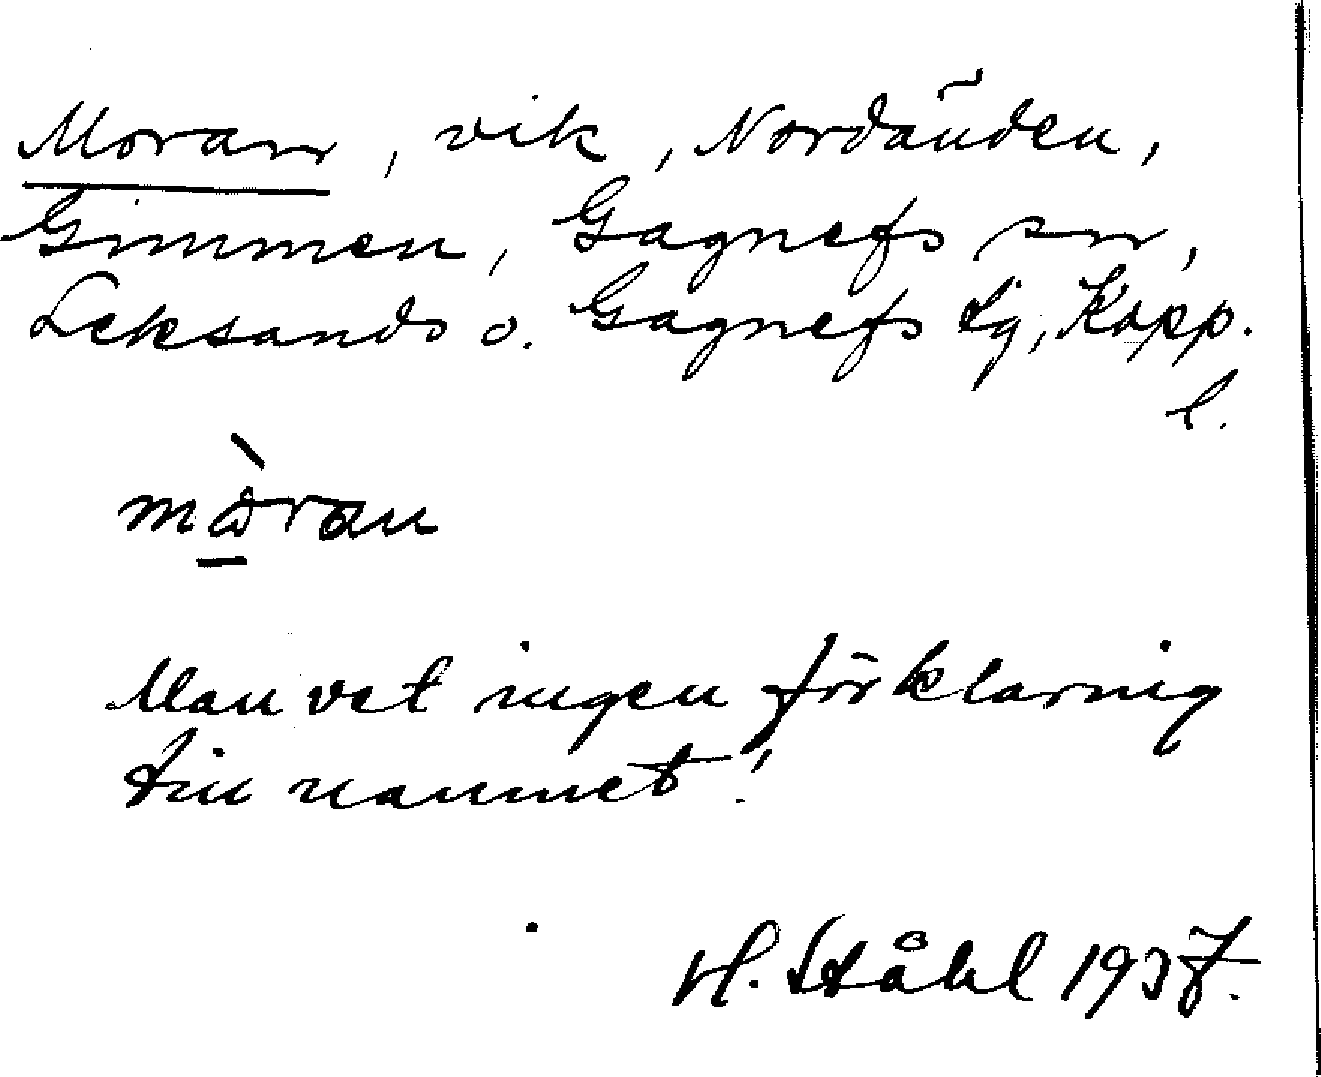 Moran, vik, Nordänden,
Gimmen, Gagnefs sn,
Leksands o. Gagnefs tg, Kopp.
l.
mòran
Man vet ingen förklaring
till namnet!
H. Ståhl 1937.